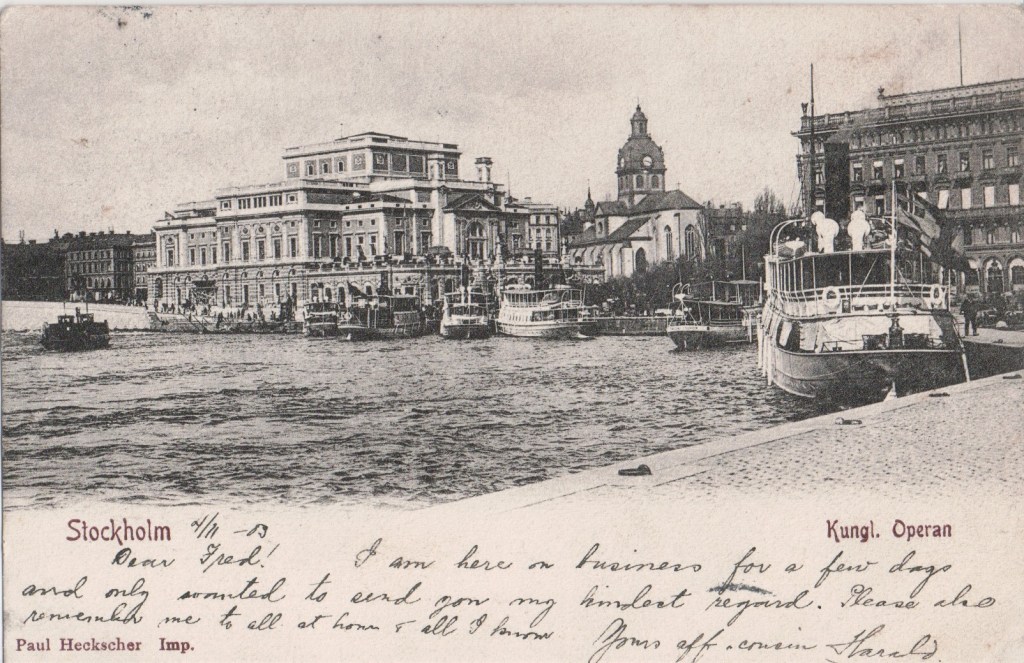 Stockholm 4/11 -03
Kungl. Operan
Dear Fred! I am here on business for a few days
and only wanted to send you my kindest regard. Please also
remember me to all at home & all I know
Yours aff. cousin Harald
Paul Heckscher Imp.